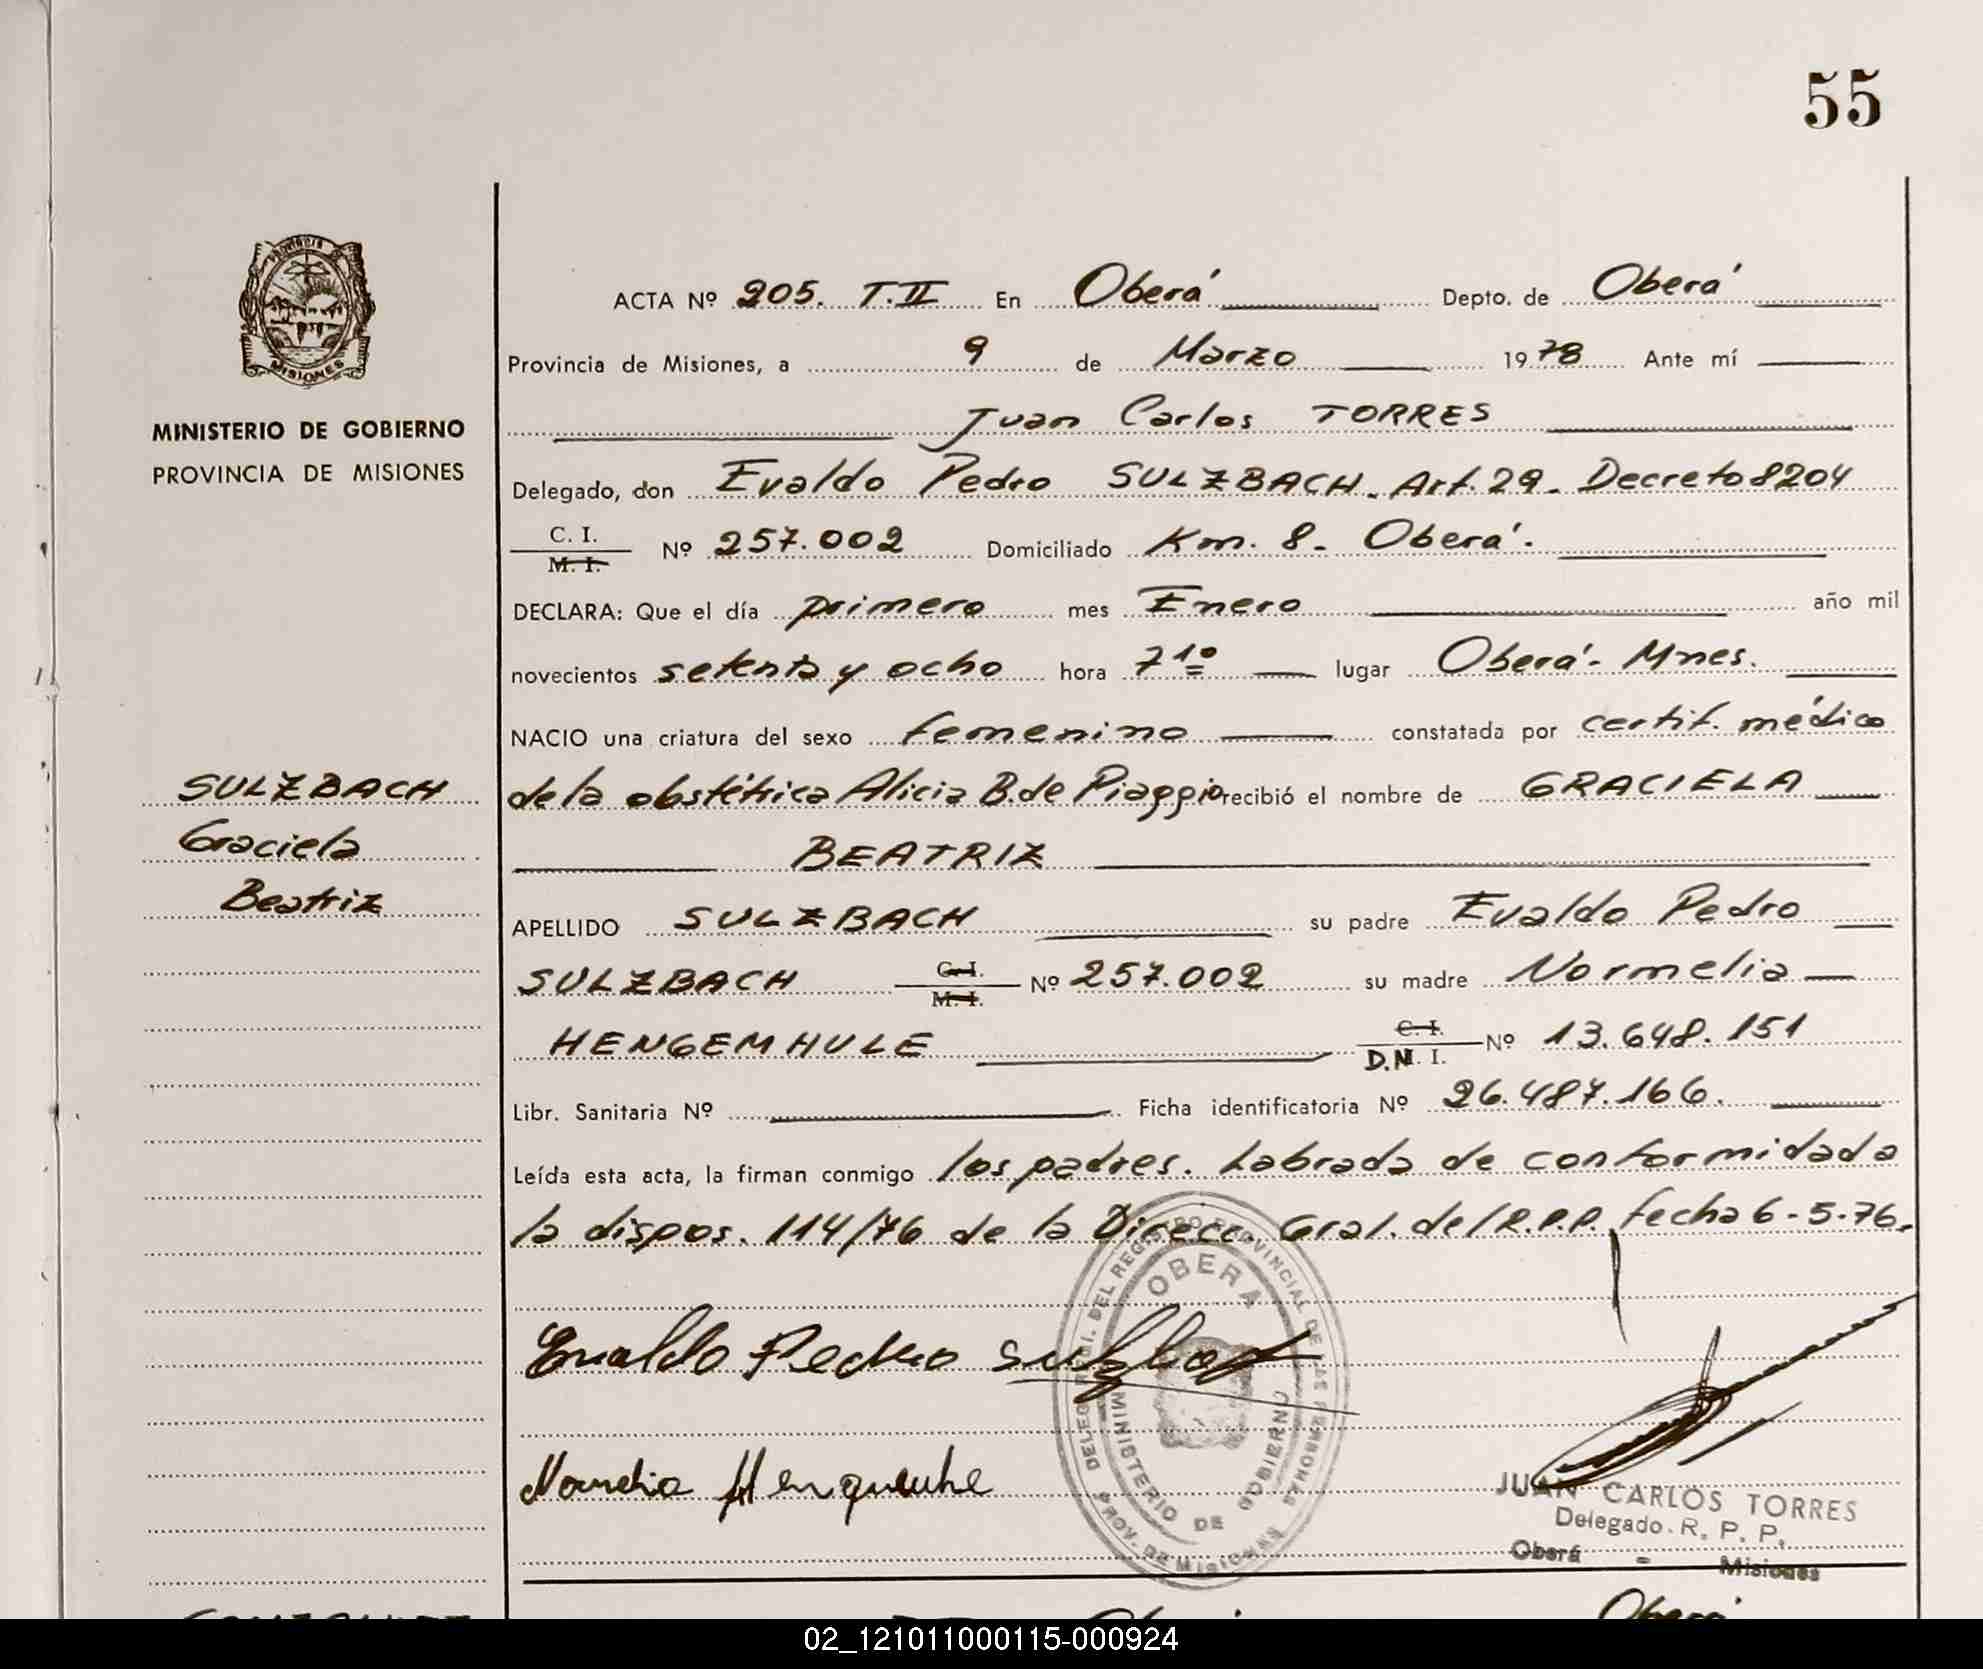 55
PROVINCIA DE
MISIONES
MINISTERIO DE GOBIERNO
PROVINCIA DE MISIONES
SULZBACH
Graciela
Beatriz
ACTA Nº 205. T.II En Oberá Depto. de Oberá
Provincia de Misiones, a 9 de Marzo 1978 Ante mí
Juan Carlos TORRES
Delegado, don Evaldo Pedro SULZBACH. Art. 29. Decreto 8204
C. I.
M. I. Nº 257.002 Domiciliado Km. 8. Oberá.
DECLARA: Que el día primero mes Enero año mil
novecientos setenta y ocho hora 7 10 lugar Oberá. Mnes.
NACIO una criatura del sexo femenino constatada por certif. médico
de la obstétrica Alicia B. de Piaggio recibió el nombre de GRACIELA
BEATRIZ
APELLIDO SULZBACH su padre Evaldo Pedro
SULZBACH C. I.
M. I. Nº 257.002 su madre Normelia
HENGEMHULE C. I.
D.N. I. Nº 13.648.151
Libr. Sanitaria Nº Ficha identificatoria Nº 26.487.166.
Leída esta acta, la firman conmigo los padres. Labrada de conformidad a
la dispos. 114/76 de la Direcc. Gral. del R.P.P. fecha 6-5-76.
DELEG. DEL REGISTRO PROVINCIAL DE LAS PERSONAS
OBERA
MINISTERIO DE GOBIERNO
PROV. DE MISIONES
Evaldo Pedro Sulzbach
JUAN CARLOS TORRES
Delegado. R. P. P.
Oberá - Misiones
Oberá
02_121011000115-000924